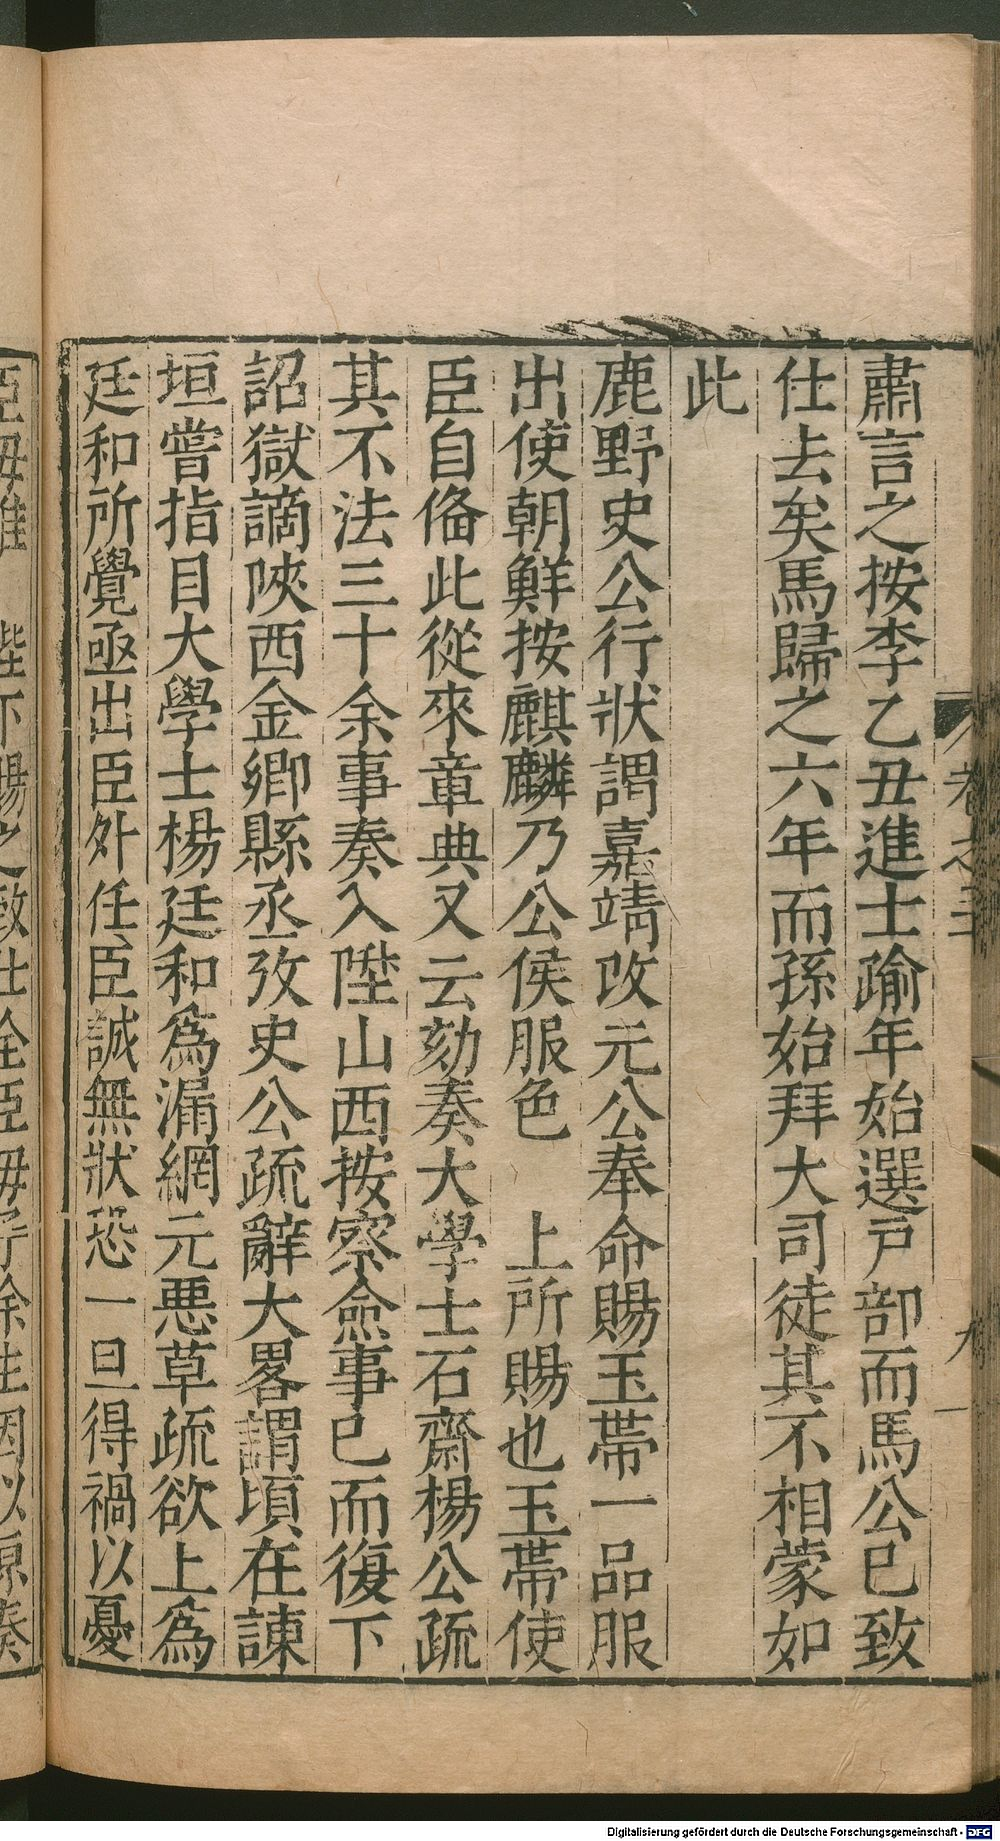 肅言之按李乙丑進士踰年始選戸部而馬公已致
仕去矣馬歸之六年而孫始拜大司徒其不相蒙如
此
鹿野史公行狀謂嘉靖改元公奉命賜玉帶一品服
出使朝鮮按麒麟乃公侯服色　上所賜也玉帶使
臣自俻此從來章典又云劾奏大學士石齋楊公疏
其不法三十余事奏入陞山西按察僉事已而復下
詔獄謫陜西金鄉縣丞攷史公疏辭大畧謂頃在諫
垣嘗指目大學士楊廷和為漏網元悪草疏欲上為
廷和所覺亟出臣外任臣誠無狀恐一旦得禍以憂
卷之三
九
陛下賜之致仕全臣母子余生因以原奏
Digitalisierung gefördert durch die Deutsche Forschungsgemeinschaft - DFG